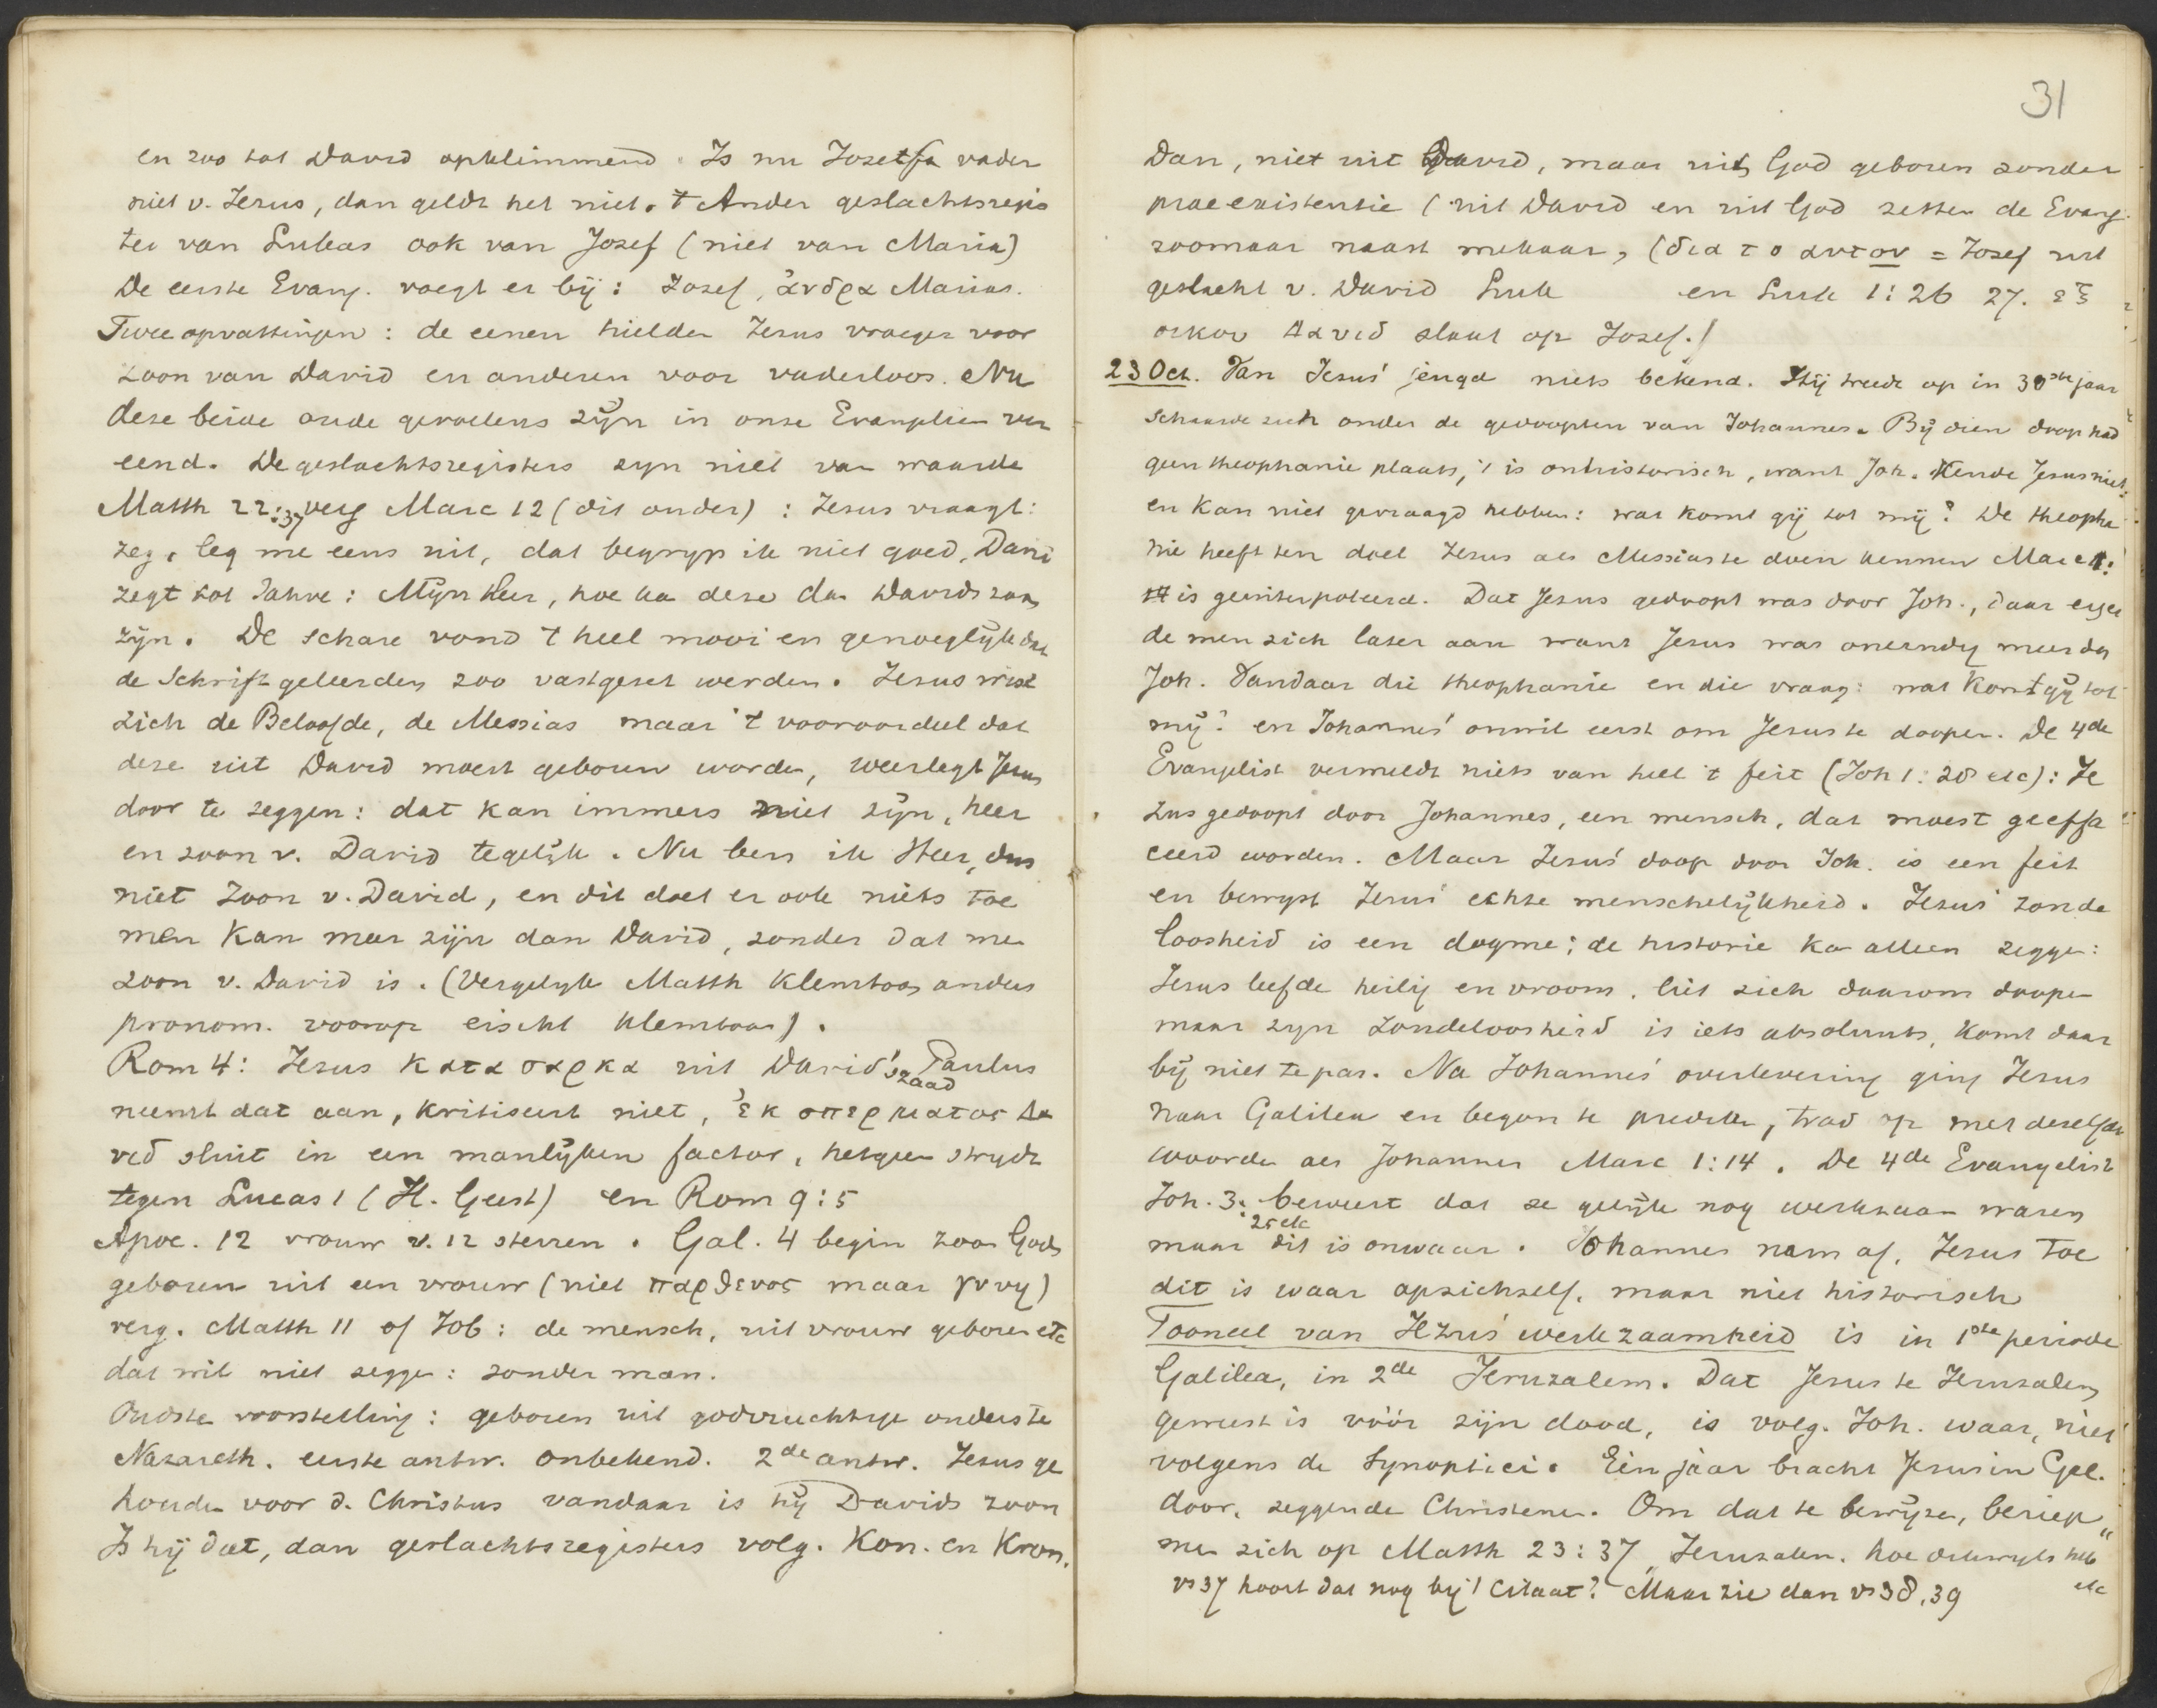 en zoo tot David opklimmend. Is nu Jozef vader
niet v. Jezus, dan geldt het niet. 't Ander geslachtsregis
ter van Lukas ook van Jozef (niet van Maria)
De eerste Evang. voegt er bij: Jozef, ἀνδρα Marias.
Twee opvattingen: de eenen hielden Jezus vroeger voor
zoon van David en anderen voor vaderloos. Nu
deze beide oude gevoelens zijn in onze Evangelien ver
eend. De geslachtsregisters zyn niet van waarde
Matth 22:37 verg Marc 12 (dit ouder): Jezus vraagt:
zeg, leg me eens uit, dat begryp ik niet goed, Davi
zegt tot Jahve: Mijn Heer, hoe ka deze dan Davids zoon
zijn. De schare vond 't heel mooi en genoegelijk dat
de Schriftgeleerden zoo vastgezet werden. Jezus wist
zich de Beloofde, de Messias maar 't vooroordeel dat
deze uit David moest geboren worden, weerlegt Jezus
door te zeggen: dat kan immers niet zijn, heer
en zoon v. David tegelijk. Nu ben ik Heer, dus
niet zoon v. David, en dit doet er ook niets toe
men kan meer zijn dan David, zonder dat me
zoon v. David is. (Vergelyk Matth klemtoon anders
pronom. voorop eischt klemtoon).
Rom 4: Jezus κατα σαρκα uit David's zaad Paulus
neemt dat aan, kritiseert niet, ἐκ σπερματος Δα
υιδ sluit in een manlijken factor, hetgeen strydt
tegen Lucas 1 (H. Geest) en Rom 9:5
Apoc. 12 vrouw v. 12 sterren. Gal. 4 begin zoon Gods
geboren uit een vrouw (niet παρθενος maar γυνη)
verg. Matth 11 of Job: de mensch, uit vrouw geboren etc
dat wil niet zegge: zonder man.
Oudste voorstelling: geboren uit godvruchtige ouders te
Nazareth. eerste antw. onbekend. 2de antw. Jezus ge
houden voor d. Christus vandaar is hij Davids zoon
Is hij dat, dan geslachtsregisters volg. Kon. en Kron.
31
Dan, niet uit David, maar uit God geboren zonder
praeexistentie (uit David en uit God zetten de Evang.
zoomaar naast mekaar, (δια το αυτον = Jozef uit
geslacht v. David Luk en Luk 1:26 27. ἐξ
οικου Δαυιδ slaat op Jozef.)
23 Oct. Van Jezus' jeugd niets bekend. Hij treedt op in 30ste jaar
schaarde zich onder de gedoopten van Johannes. Bij dien doop had
geen theophanie plaats, 't is onhistorisch, want Joh. kende Jezus niet
en kan niet gevraagd hebben: wat komt gij tot mij? De theopha
nie heeft ten doel Jezus als Messias te doen kennen Marc 1:
14 is geinterpoleerd. Dat Jezus gedoopt was door Joh., daar erger
de men zich later aan want Jezus was oneindig meer dan
Joh. Vandaar die theophanie en die vraag: wat komt gij tot
mij? en Johannes' onwil eerst om Jezus te doopen. De 4de
Evangelist vermeldt niets van heel 't feit (Joh 1:28 etc): Je
zus gedoopt door Johannes, een mensch, dat moest geeffa
ceerd worden. Maar Jezus' doop door Joh. is een feit
en bewyst Jezus' echte menschelijkheid. Jezus' zonde
loosheid is een dogme; de historie ka alleen zegge:
Jezus leefde heilig en vroom, liet zich daarom doopen
maar zyn zondeloosheid is iets absoluuts, komt daar
bij niet te pas. Na Johannes' overlevering ging Jezus
naar Galilea en begon te prediken, trad op met dezelfde
woorden als Johannes Marc 1:14. De 4de Evangelist
Joh. 3:25 etc beweert dat ze gelijk nog werkzaam waren
maar dit is onwaar. Johannes nam af, Jezus toe
dit is waar opzichzelf, maar niet historisch
Tooneel van Jezus' werkzaamheid is in 1ste periode
Galilea, in 2de Jeruzalem. Dat Jezus te Jeruzalem
geweest is vóór zijn dood, is volg. Joh. waar, niet
volgens de Synoptici. Eén jaar bracht Jezus in Gal.
door, zeggende Christenen. Om dat te bewijze, beriep
me zich op Matth 23:37 „Jeruzalem. hoe dikwyls heb" etc
vs 37 hoort dat nog bij 't citaat? Maar zie dan vs 38, 39